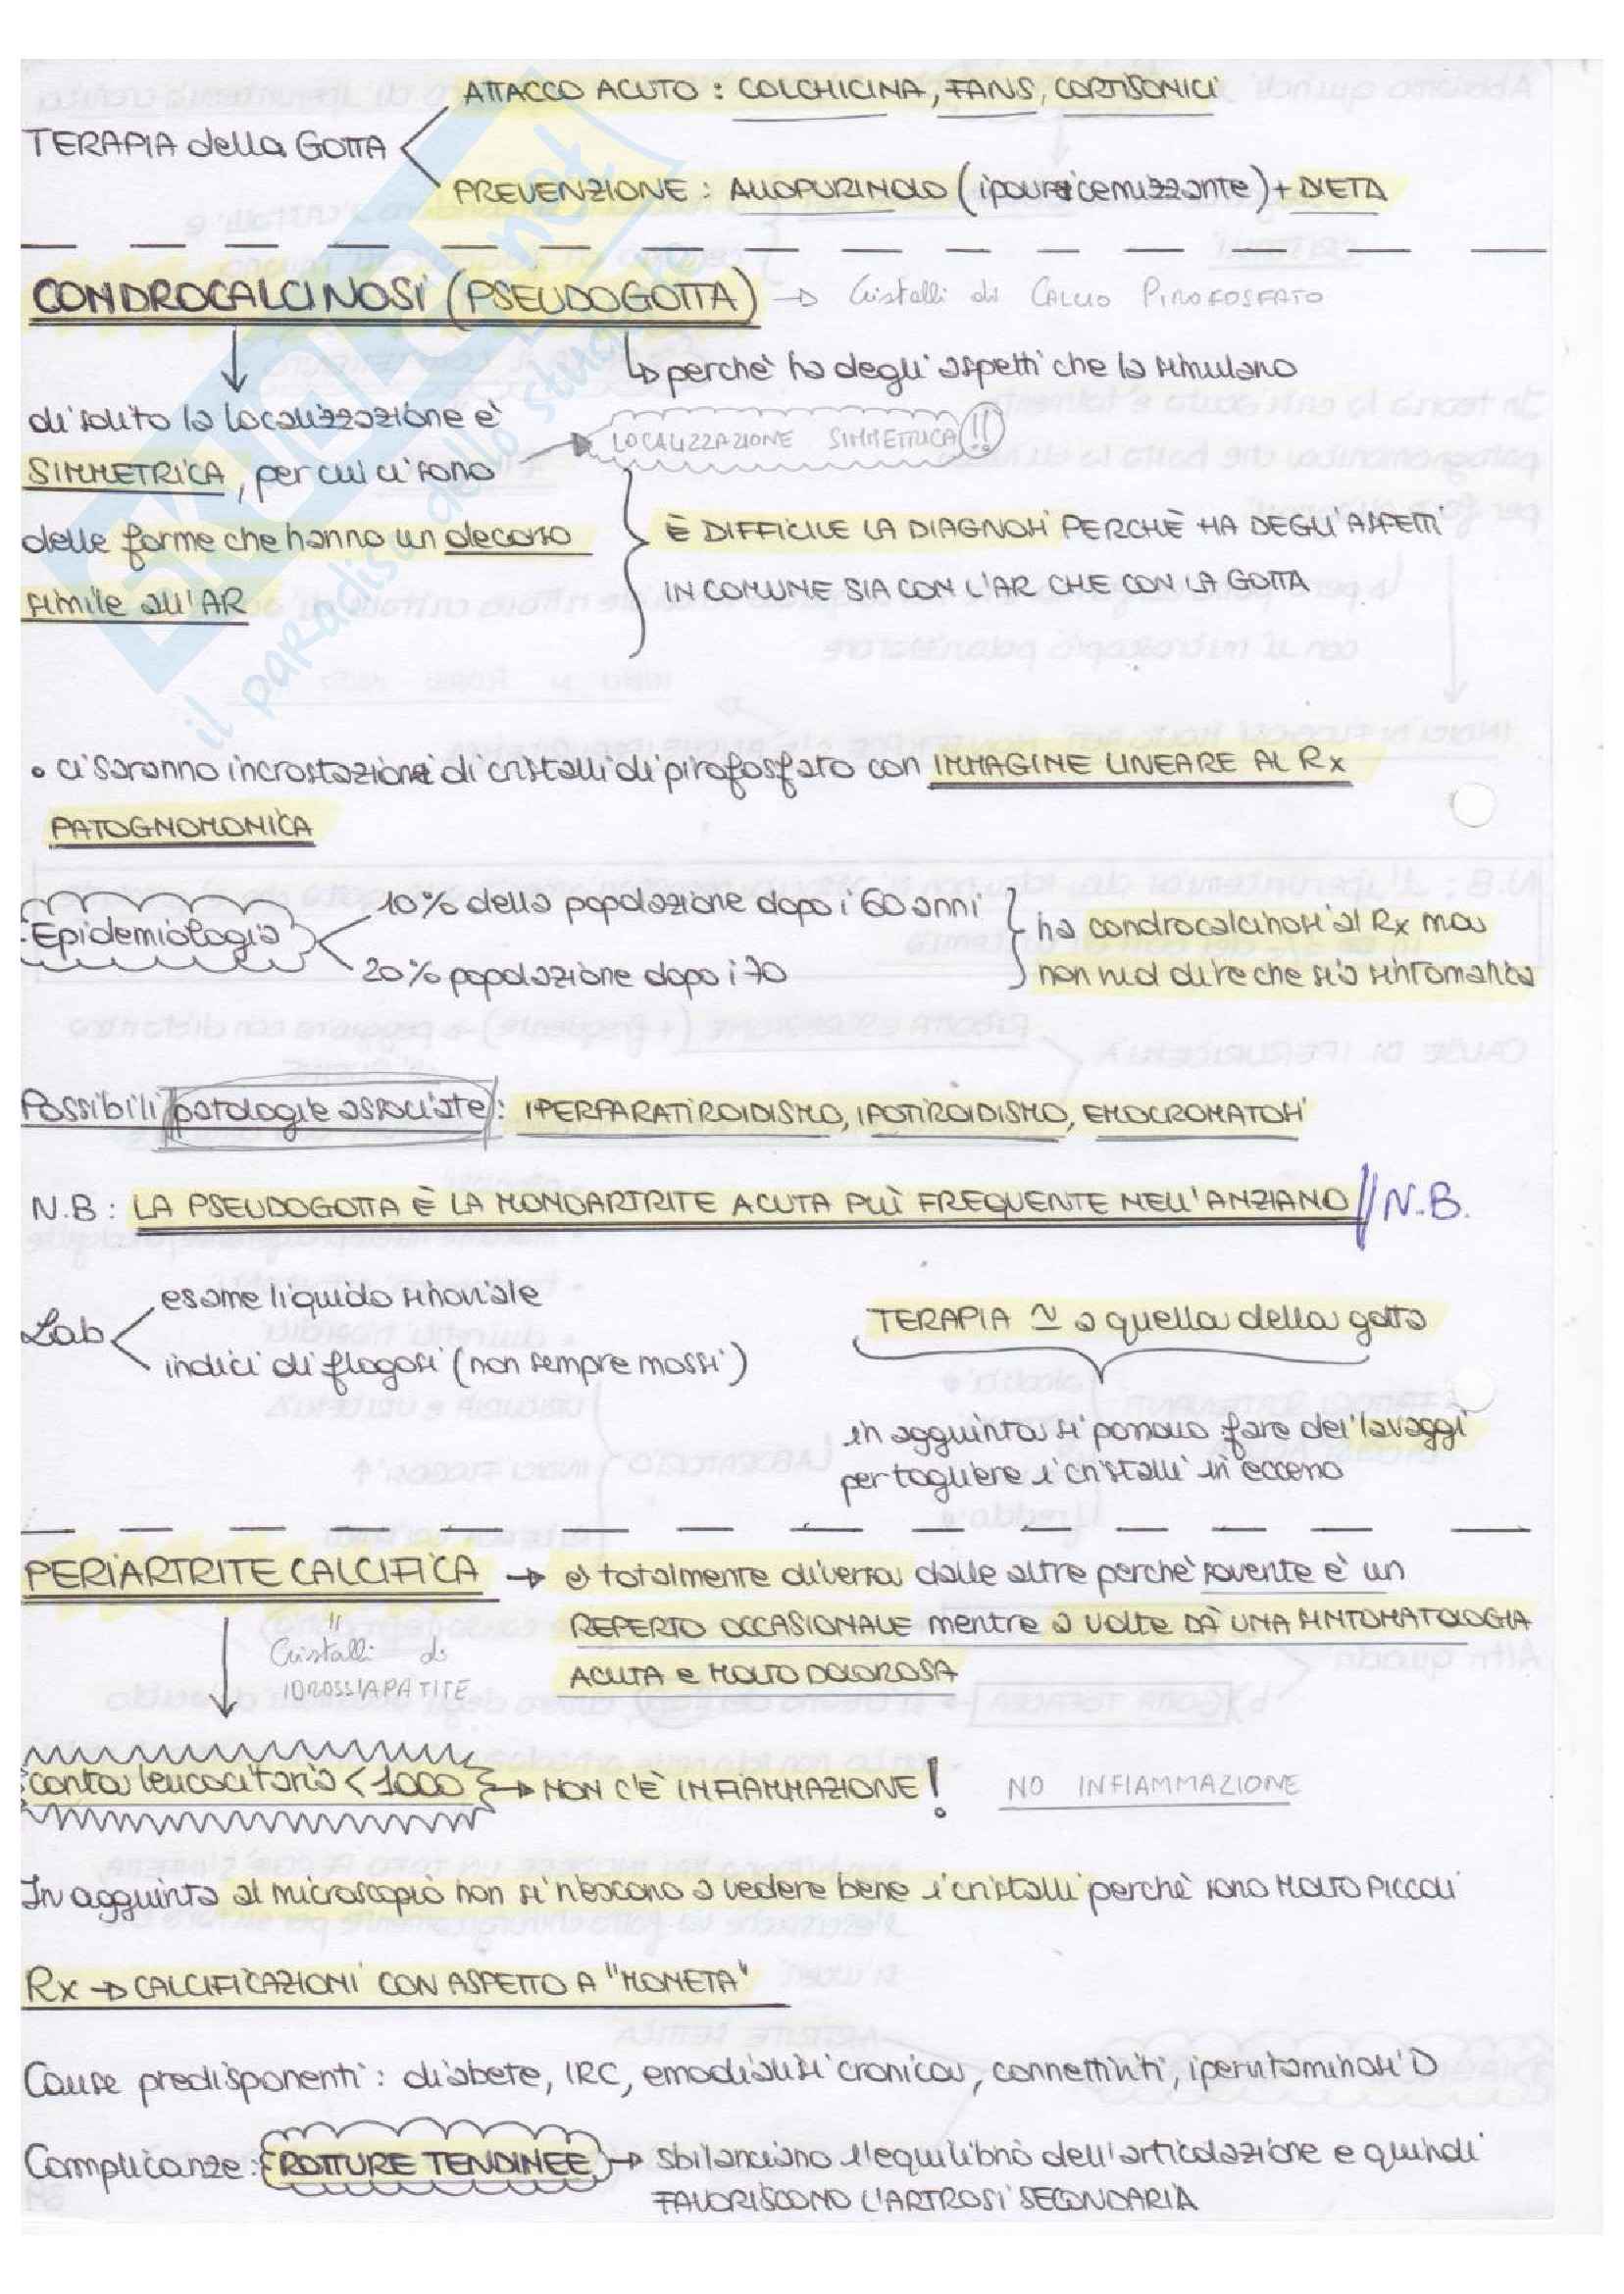 ATTACCO ACUTO : COLCHICINA, FANS, CORTISONICI
TERAPIA della GOTTA
PREVENZIONE : ALLOPURINOLO (ipouricemizzante) + DIETA
CONDROCALCINOSI (PSEUDOGOTTA) → Cristalli di CALCIO PIROFOSFATO
↳ perchè ha degli aspetti che la simulano
di solito la localizzazione è
SIMMETRICA, per cui ci sono
LOCALIZZAZIONE SIMMETRICA !!
delle forme che hanno un decorso
simile all'AR
È DIFFICILE LA DIAGNOSI PERCHÈ HA DEGLI ASPETTI
IN COMUNE SIA CON L'AR CHE CON LA GOTTA
• ci saranno incrostazioni di cristalli di pirofosfato con IMMAGINE LINEARE AL Rx
PATOGNOMONICA
Epidemiologia
10% della popolazione dopo i 60 anni
20% popolazione dopo i 70
ha condrocalcinosi al Rx ma
non vuol dire che sia sintomatica
Possibili patologie associate : IPERPARATIROIDISMO, IPOTIROIDISMO, EMOCROMATOSI
N.B : LA PSEUDOGOTTA È LA MONOARTRITE ACUTA PIÙ FREQUENTE NELL'ANZIANO // N.B.
Lab
esame liquido sinoviale
indici di flogosi (non sempre mossi)
TERAPIA ≃ a quella della gotta
in aggiunta si possono fare dei lavaggi
per togliere i cristalli in eccesso
PERIARTRITE CALCIFICA → è totalmente diversa dalle altre perchè sovente è un
REPERTO OCCASIONALE mentre a volte DÀ UNA SINTOMATOLOGIA
ACUTA e MOLTO DOLOROSA
"
Cristalli di
IDROSSIAPATITE
conta leucocitaria < 1000 → NON C'È INFIAMMAZIONE ! NO INFIAMMAZIONE
In aggiunta al microscopio non si riescono a vedere bene i cristalli perchè sono MOLTO PICCOLI
Rx → CALCIFICAZIONI CON ASPETTO A "MONETA"
Cause predisponenti : diabete, IRC, emodialisi cronica, connettiviti, ipervitaminosi D
Complicanze : ROTTURE TENDINEE → sbilanciano l'equilibrio dell'articolazione e quindi
FAVORISCONO L'ARTROSI SECONDARIA
SKUOLA.net
il paradiso dello studente